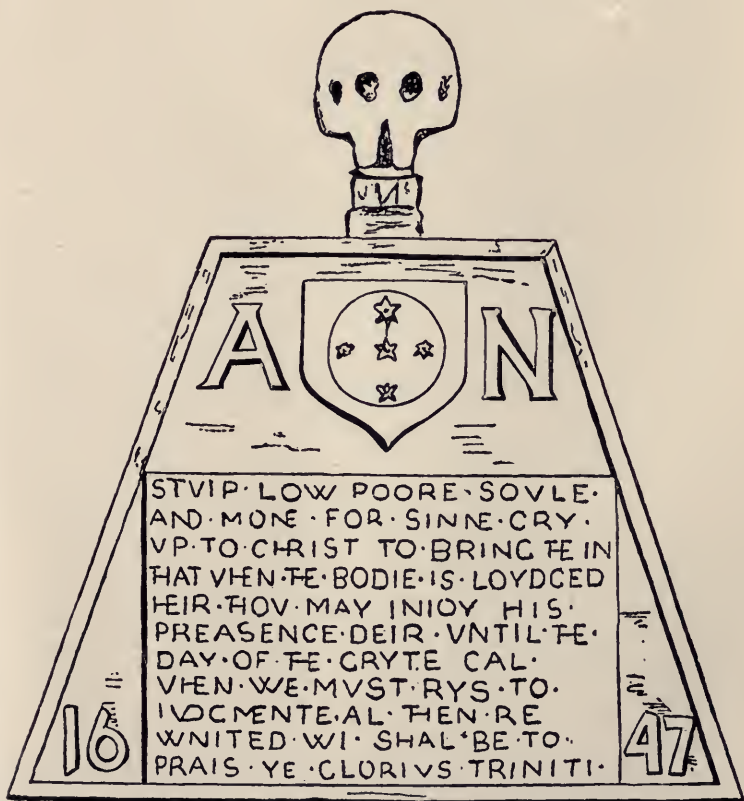 A N
STVIP · LOW POORE · SOVLE ·
AND · MONE · FOR · SINNE · CRY ·
VP · TO · CHRIST TO · BRINC TE IN
THAT VHEN · TE · BODIE · IS · LOYDCED
HEIR · THOV · MAY INIOY HIS ·
PREASENCE · DEIR · VNTIL · TE ·
DAY · OF · TE · GRYTE CAL ·
VHEN · WE · MVST · RYS · TO ·
IVDCMENTE · AL · THEN · RE
WNITED · WI · SHAL · BE · TO ·
PRAIS · YE · CLORIVS · TRINITI ·
16 47